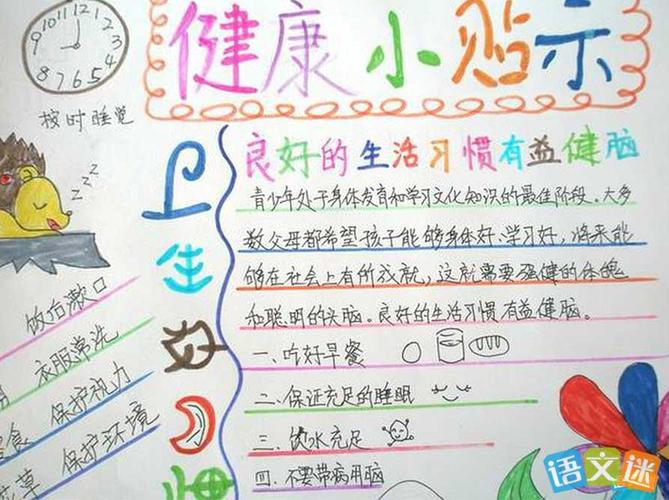 健康小贴示
11 12 1
10 2
9 3
8 7 6 5 4
按时睡觉
zzz
卫生好
良好的生活习惯有益健脑
青少年处于身体发育和学习文化知识的最佳阶段。大多
数父母都希望孩子能够身体好、学习好，将来能
够在社会上有所成就，这就需要强健的体魄
和聪明的头脑。良好的生活习惯有益健脑。
一、吃好早餐
二、保证充足的睡眠
三、饮水充足
四、不要带病用脑
饭后漱口
衣服常洗
食 保护视力
草 保护环境
语文迷